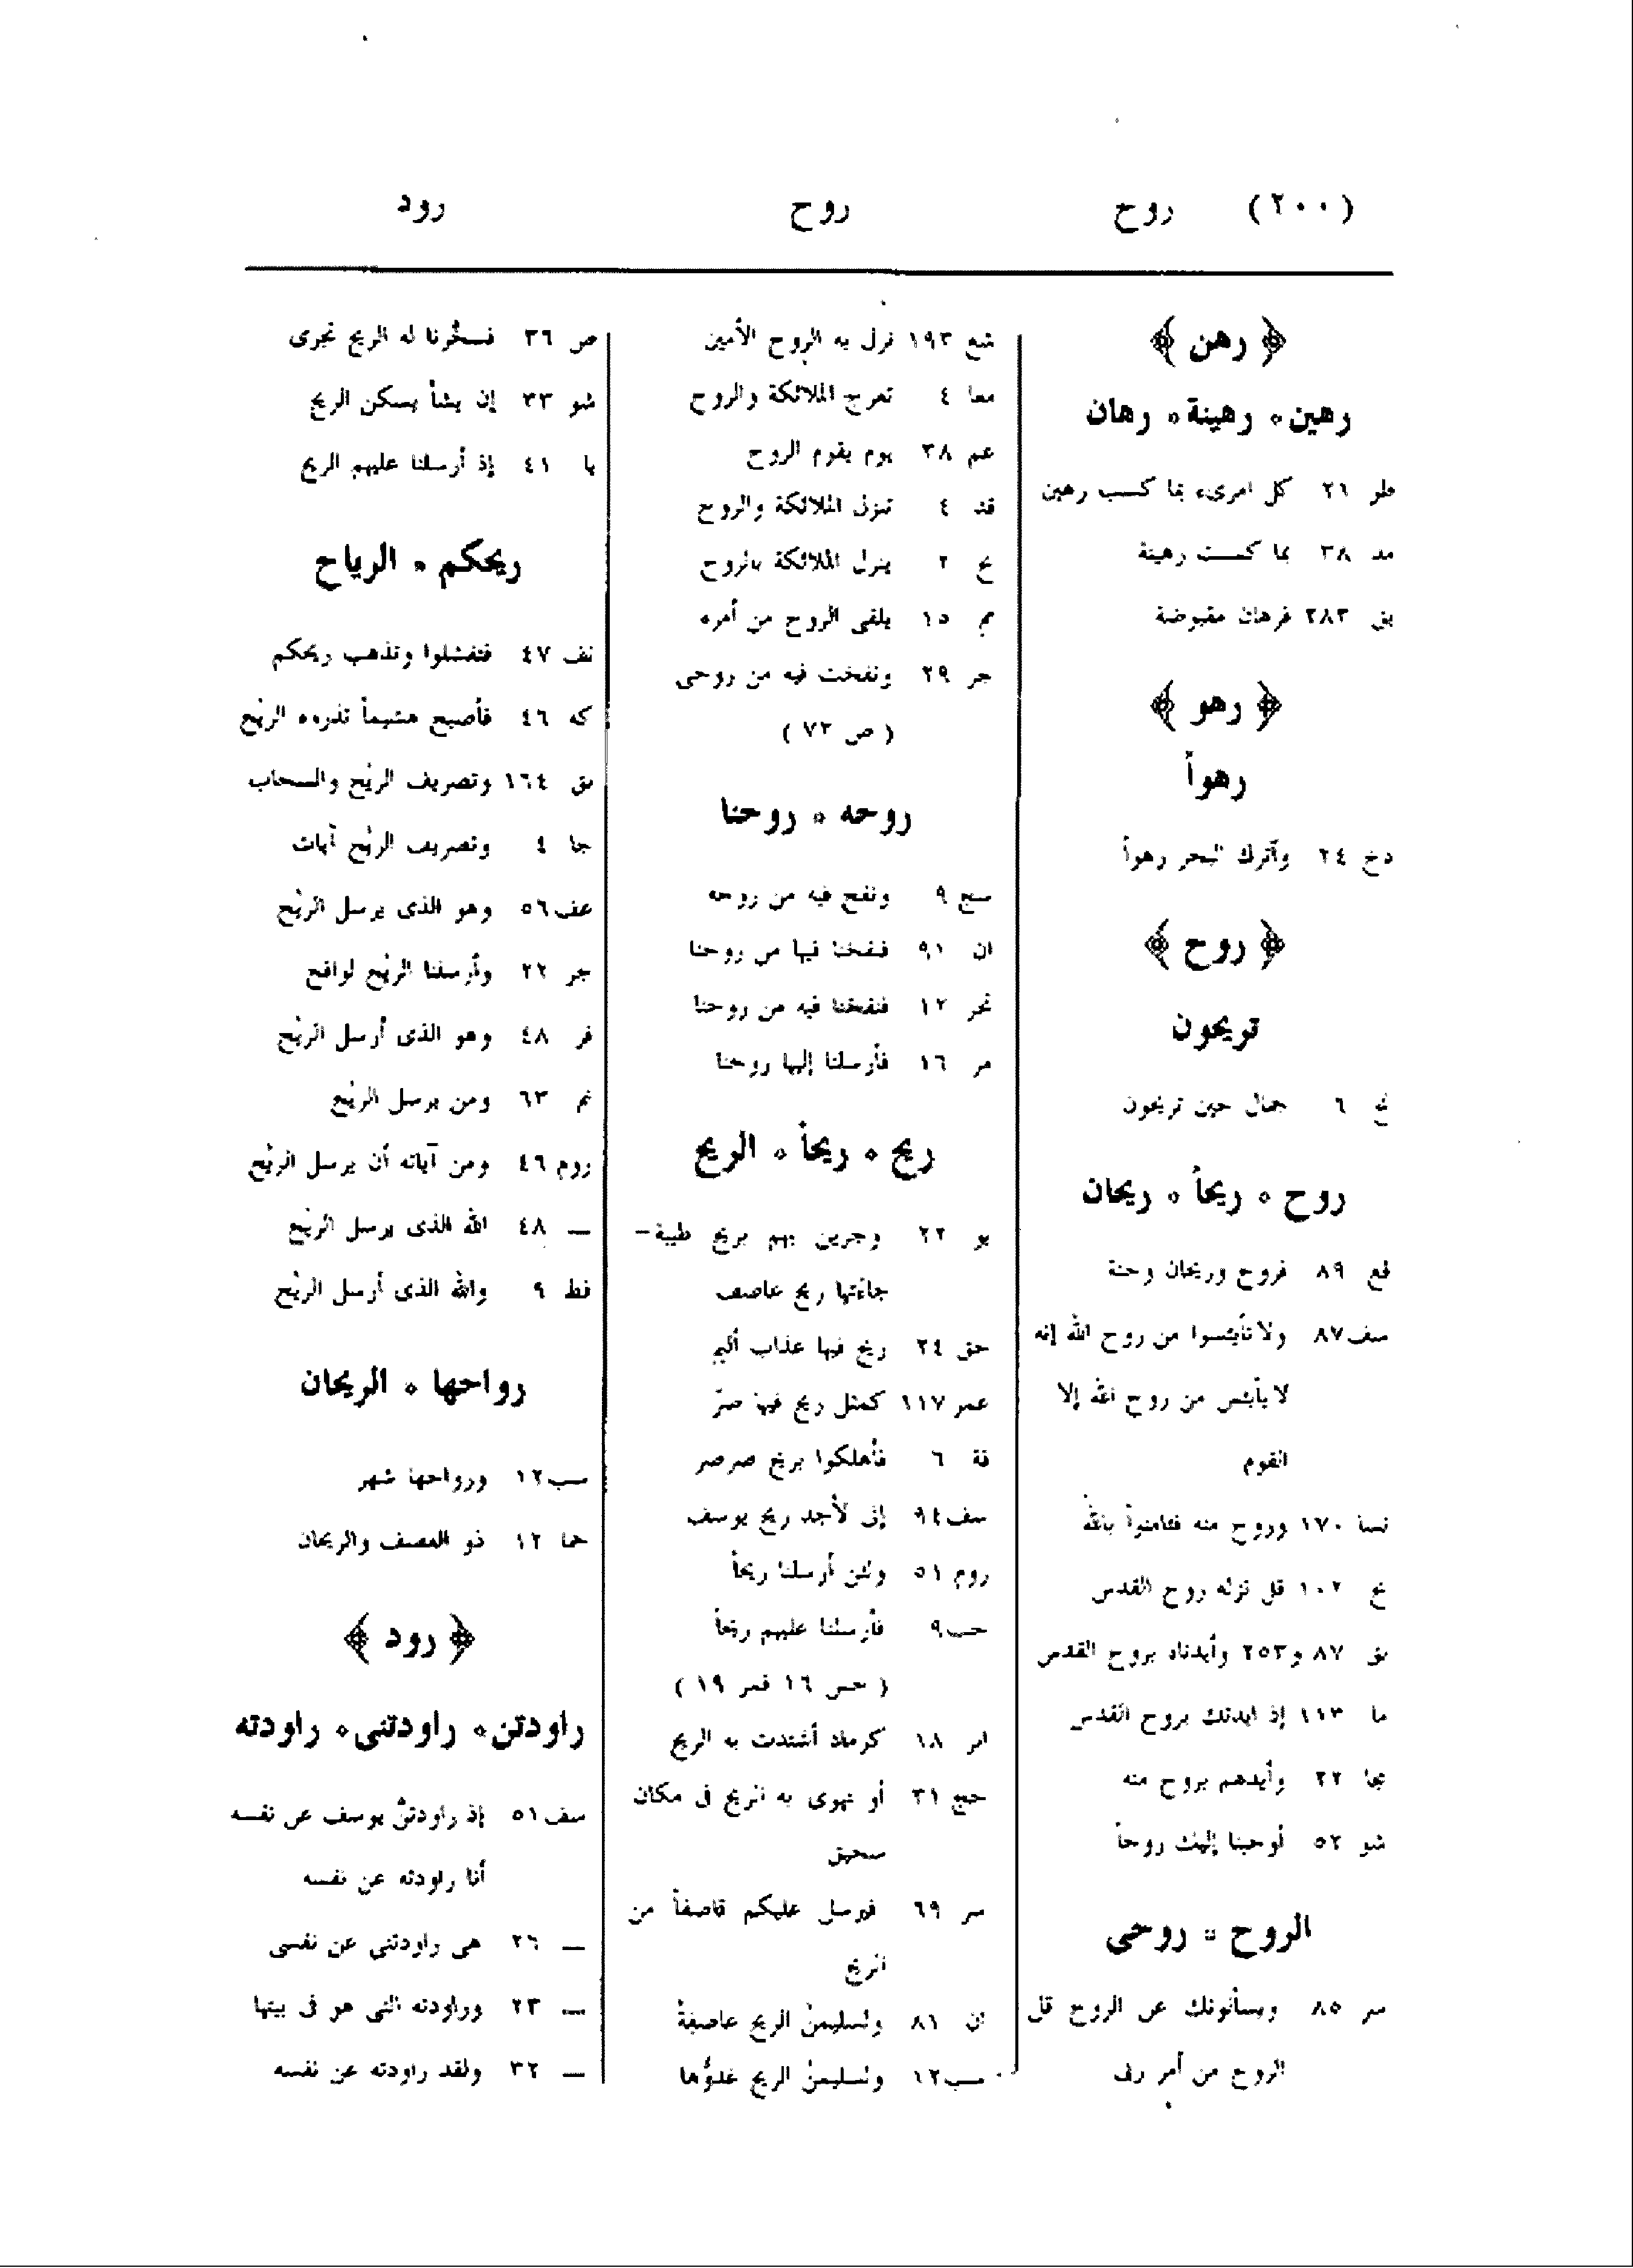 (٢٠٠) روح روح رود
﴿ رهن ﴾
رهين ٭ رهينة ٭ رهان
طو ٢١ كل امرىء بما كسب رهين
مد ٣٨ بما كسبت رهينة
بق ٢٨٣ فرهان مقبوضة
﴿ رهو ﴾
رهواً
دخ ٢٤ وآترك البحر رهواً
﴿ روح ﴾
تريحون
نح ٦ جمال حين تريحون
روح ٭ ريحاً ٭ ريحان
قع ٨٩ فروح وريحان وجنة
سف ٨٧ ولا تأيئسوا من روح الله إنه
لا يأيئس من روح الله إلا
القوم
نسا ١٧٠ وروح منه فئامنوا بالله
نح ١٠٢ قل نزله روح القدس
بق ٨٧ و٢٥٣ وأيدناه بروح القدس
ما ١١٣ إذ ايدتك بروح القدس
مجا ٢٢ وأيدهم بروح منه
شو ٥٢ أوحينا إليك روحاً
الروح ٭ روحى
سر ٨٥ ويسألونك عن الروح قل
الروح من أمر ربى
شع ١٩٣ نزل به الروح الأمين
معا ٤ تعرج الملائكة والروح
عم ٣٨ يوم يقوم الروح
قد ٤ تنزل الملائكة والروح
نح ٢ ينزل الملائكة بالروح
مم ١٥ يلقى الروح من أمره
جر ٢٩ ونفخت فيه من روحى
( ص ٧٢ )
روحه ٭ روحنا
سج ٩ ونفخ فيه من روحه
ان ٩١ فنفخنا فيها من روحنا
تحر ١٢ فنفخنا فيه من روحنا
مر ١٦ فأرسلنا إليها روحنا
ريح ٭ ريحاً ٭ الريح
يو ٢٢ وجرين بهم بريح طيبة –
جاءتها ريح عاصف
حق ٢٤ ريح فيها عذاب أليم
عمر ١١٧ كمثل ريح فيها صرّ
قة ٦ فأهلكوا بريح صرصر
سف ٩٤ إنى لأجد ريح يوسف
روم ٥١ ولئن أرسلنا ريحاً
حب ٩ فأرسلنا عليهم ريحاً
( حس ١٦ قمر ١٩ )
ابر ١٨ كرماد أشتدت به الريح
حج ٣١ أو تهوى به الريح فى مكان
سحيق
سر ٦٩ فيرسل عليكم قاصفاً من
الريح
ان ٨١ ولسليمنَ الريح عاصفةً
سب ١٢ ولسليمنَ الريح غدوُّها
ص ٣٦ فسخّرنا له الريح تجرى
شو ٣٣ إن يشأ يسكن الريح
يا ٤١ إذ أرسلنا عليهم الريح
ريحكم ٭ الرياح
نف ٤٧ فتفشلوا وتذهب ريحكم
كه ٤٦ فأصبح هشيماً تذروه الريٰح
بق ١٦٤ وتصريف الريٰح والسحاب
جا ٤ وتصريف الريٰح آيات
عف ٥٦ وهو الذى يرسل الريٰح
جر ٢٢ وأرسلنا الريٰح لواقح
فر ٤٨ وهو الذى أرسل الريٰح
نم ٦٣ ومن يرسل الريٰح
روم ٤٦ ومن آياته أن يرسل الريٰح
— ٤٨ الله الذى يرسل الريٰح
فط ٩ والله الذى أرسل الريٰح
رواحها ٭ الريحان
سب ١٢ ورواحها شهر
حما ١٢ ذو العصف والريحان
﴿ رود ﴾
راودتن ٭ راودتنى ٭ راودته
سف ٥١ إذ راودتنّ يوسف عن نفسه
أنا راودته عن نفسه
— ٢٦ هى راودتنى عن نفسى
— ٢٣ وراودته التى هو فى بيتها
— ٣٢ ولقد راودته عن نفسه